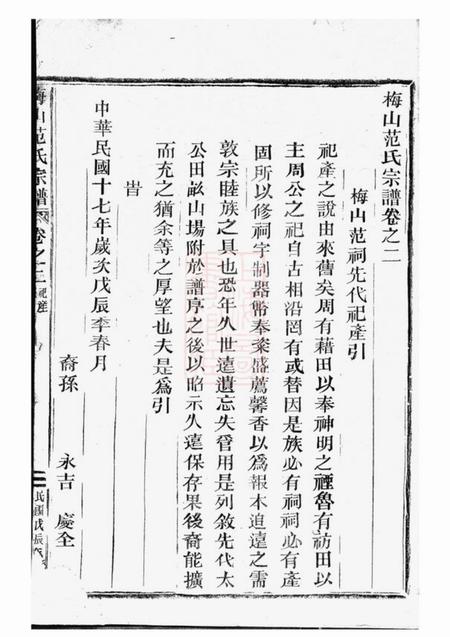 梅山范氏宗譜卷之二
梅山范祠先代祀產引
祀產之說由來舊矣周有藉田以奉神明之禋魯有訪田以
主周公之祀自古相沿罔有或替因是族必有祠祠必有產
固所以修祠宇制器幣奉粢盛薦馨香以為報本追遠之需
敦宗睦族之具也恐年久世遠遺忘失管用是列敘先代太
公田畝山場附於譜序之後以昭示久遠保存果後裔能擴
而充之猶余等之厚望也夫是為引
旹
中華民國十七年歲次戊辰季春月
裔孫 永吉 慶全
梅山范氏宗譜 卷之二 祀產
民國戊辰